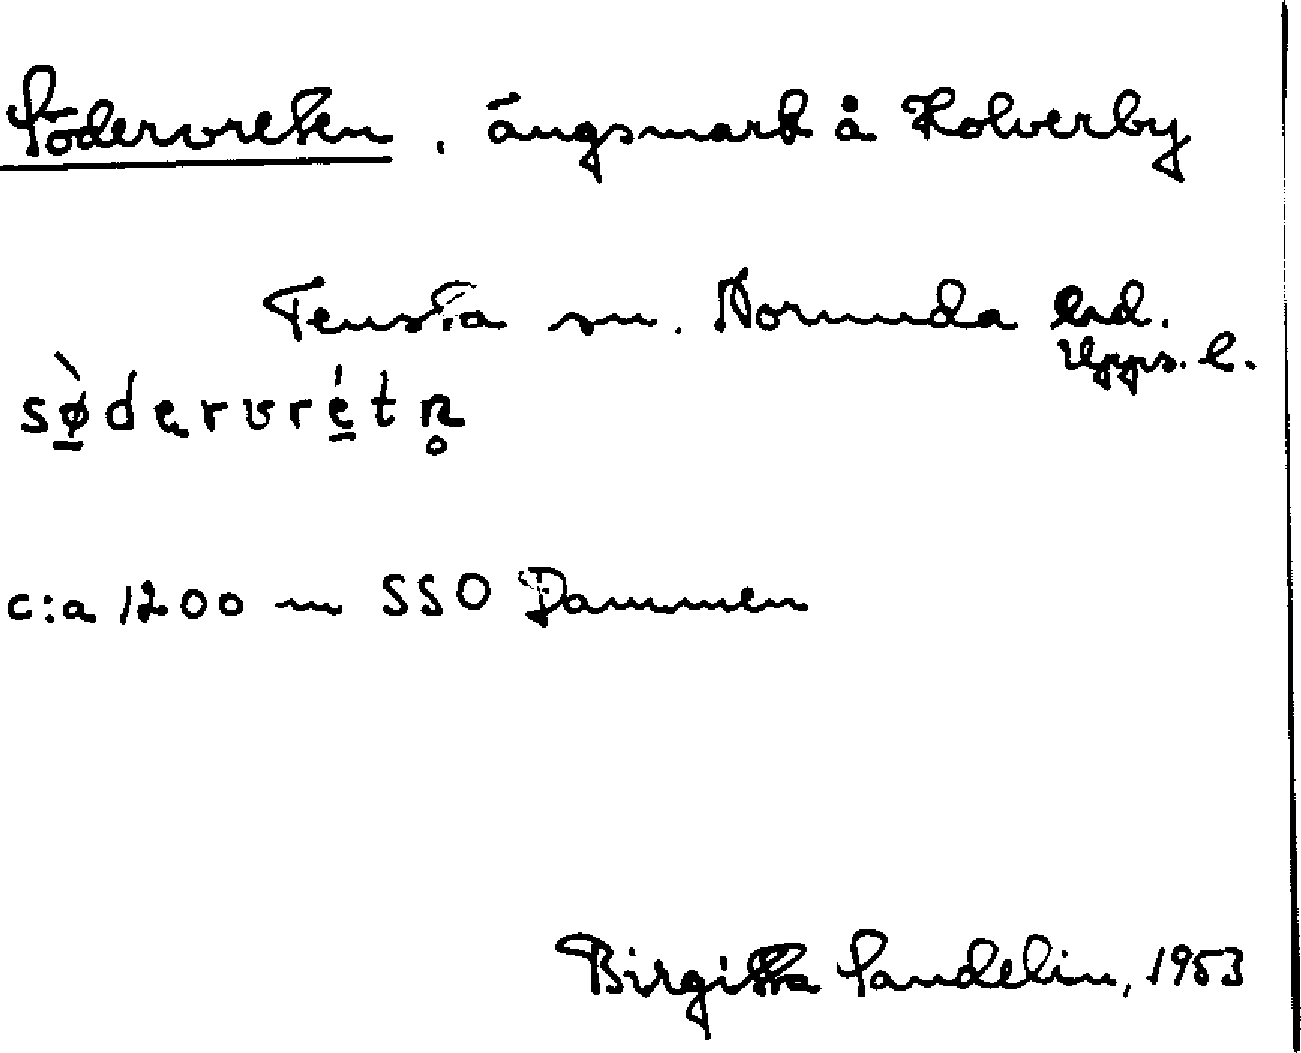 Södervreten, ängsmark å Kolverby
Tensta sn. Norunda hd.
Upps. l.
sø̀dərvrét n̥
c:a 1200 m SSO Dammen
Birgitta Sandelin, 1953